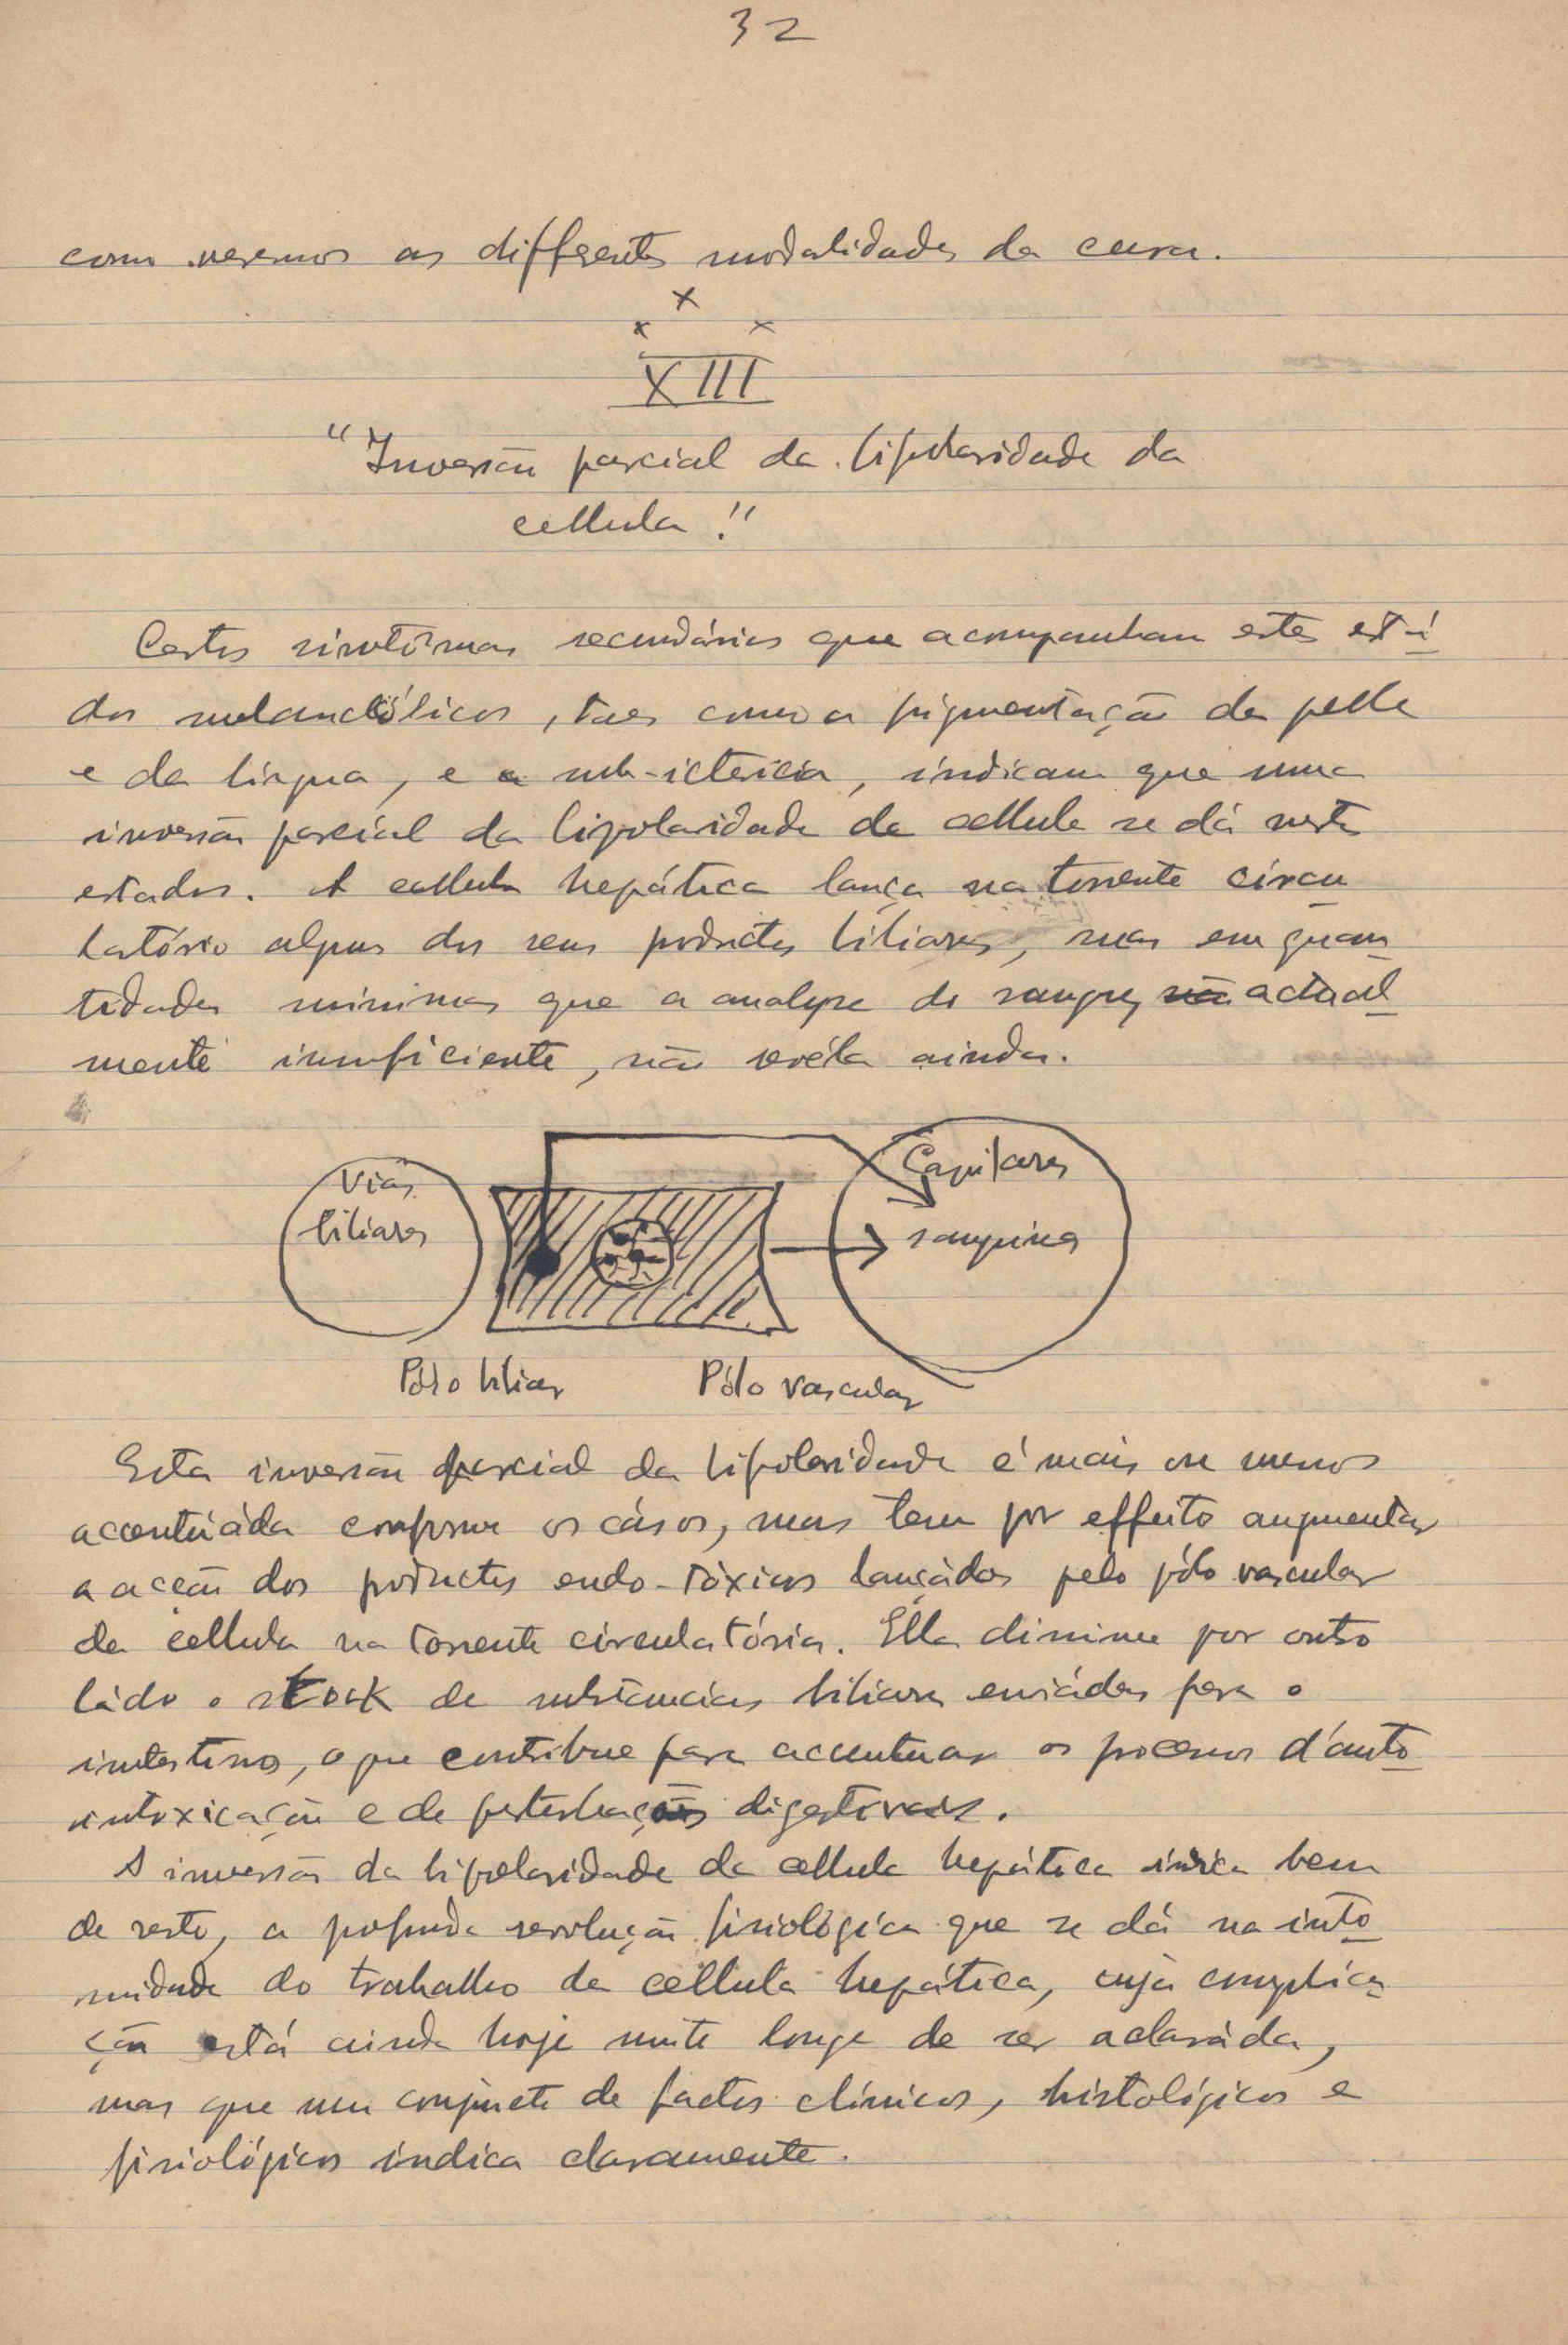 32
como veremos as differentes modalidades da cura.
x
x x
XIII
"Inversão parcial da bipolaridade da
cellula."
Certos sintômas secundários que acompanham estes está
dos melancólicos, taes como a pigmentação da pelle
e da lingua, e a sub-ictericia, indicam que uma
inversão parcial da bipolaridade da cellula se dá nestes
estados. A cellula hepática lança na torrente circu
latório alguns dos seus productos biliares, mas em quan
tidades minimas que a analyse do sangue, não actual
mente insuficiente, não revéla ainda.
Vias
biliares
Capilares
sanguineos
Pólo biliar Pólo vascular
Esta inversão parcial da bipolaridade é mais ou menos
accentuáda conforme os cásos, mas tem por effeito augmentar
a acção dos productos endo-tóxicos lançádos pelo pólo vascular
da cellula na torrente circulatória. Ella diminue por outro
ládo o stock de substancias biliares enviádas para o
intestino, o que contribue para accentuar os processos d'auto
intoxicação e de perturbações digestivas.
A inversão da bipolaridade da cellula hepática indica bem
de resto, a profunda revolução fisiológica que se dá na inti
midade do trabalho da cellula hepática, cuja complica
ção está ainda hoje muito longe de ser aclaráda,
mas que um conjuncto de factos clínicos, histológicos e
fisiológicos indica claramente.